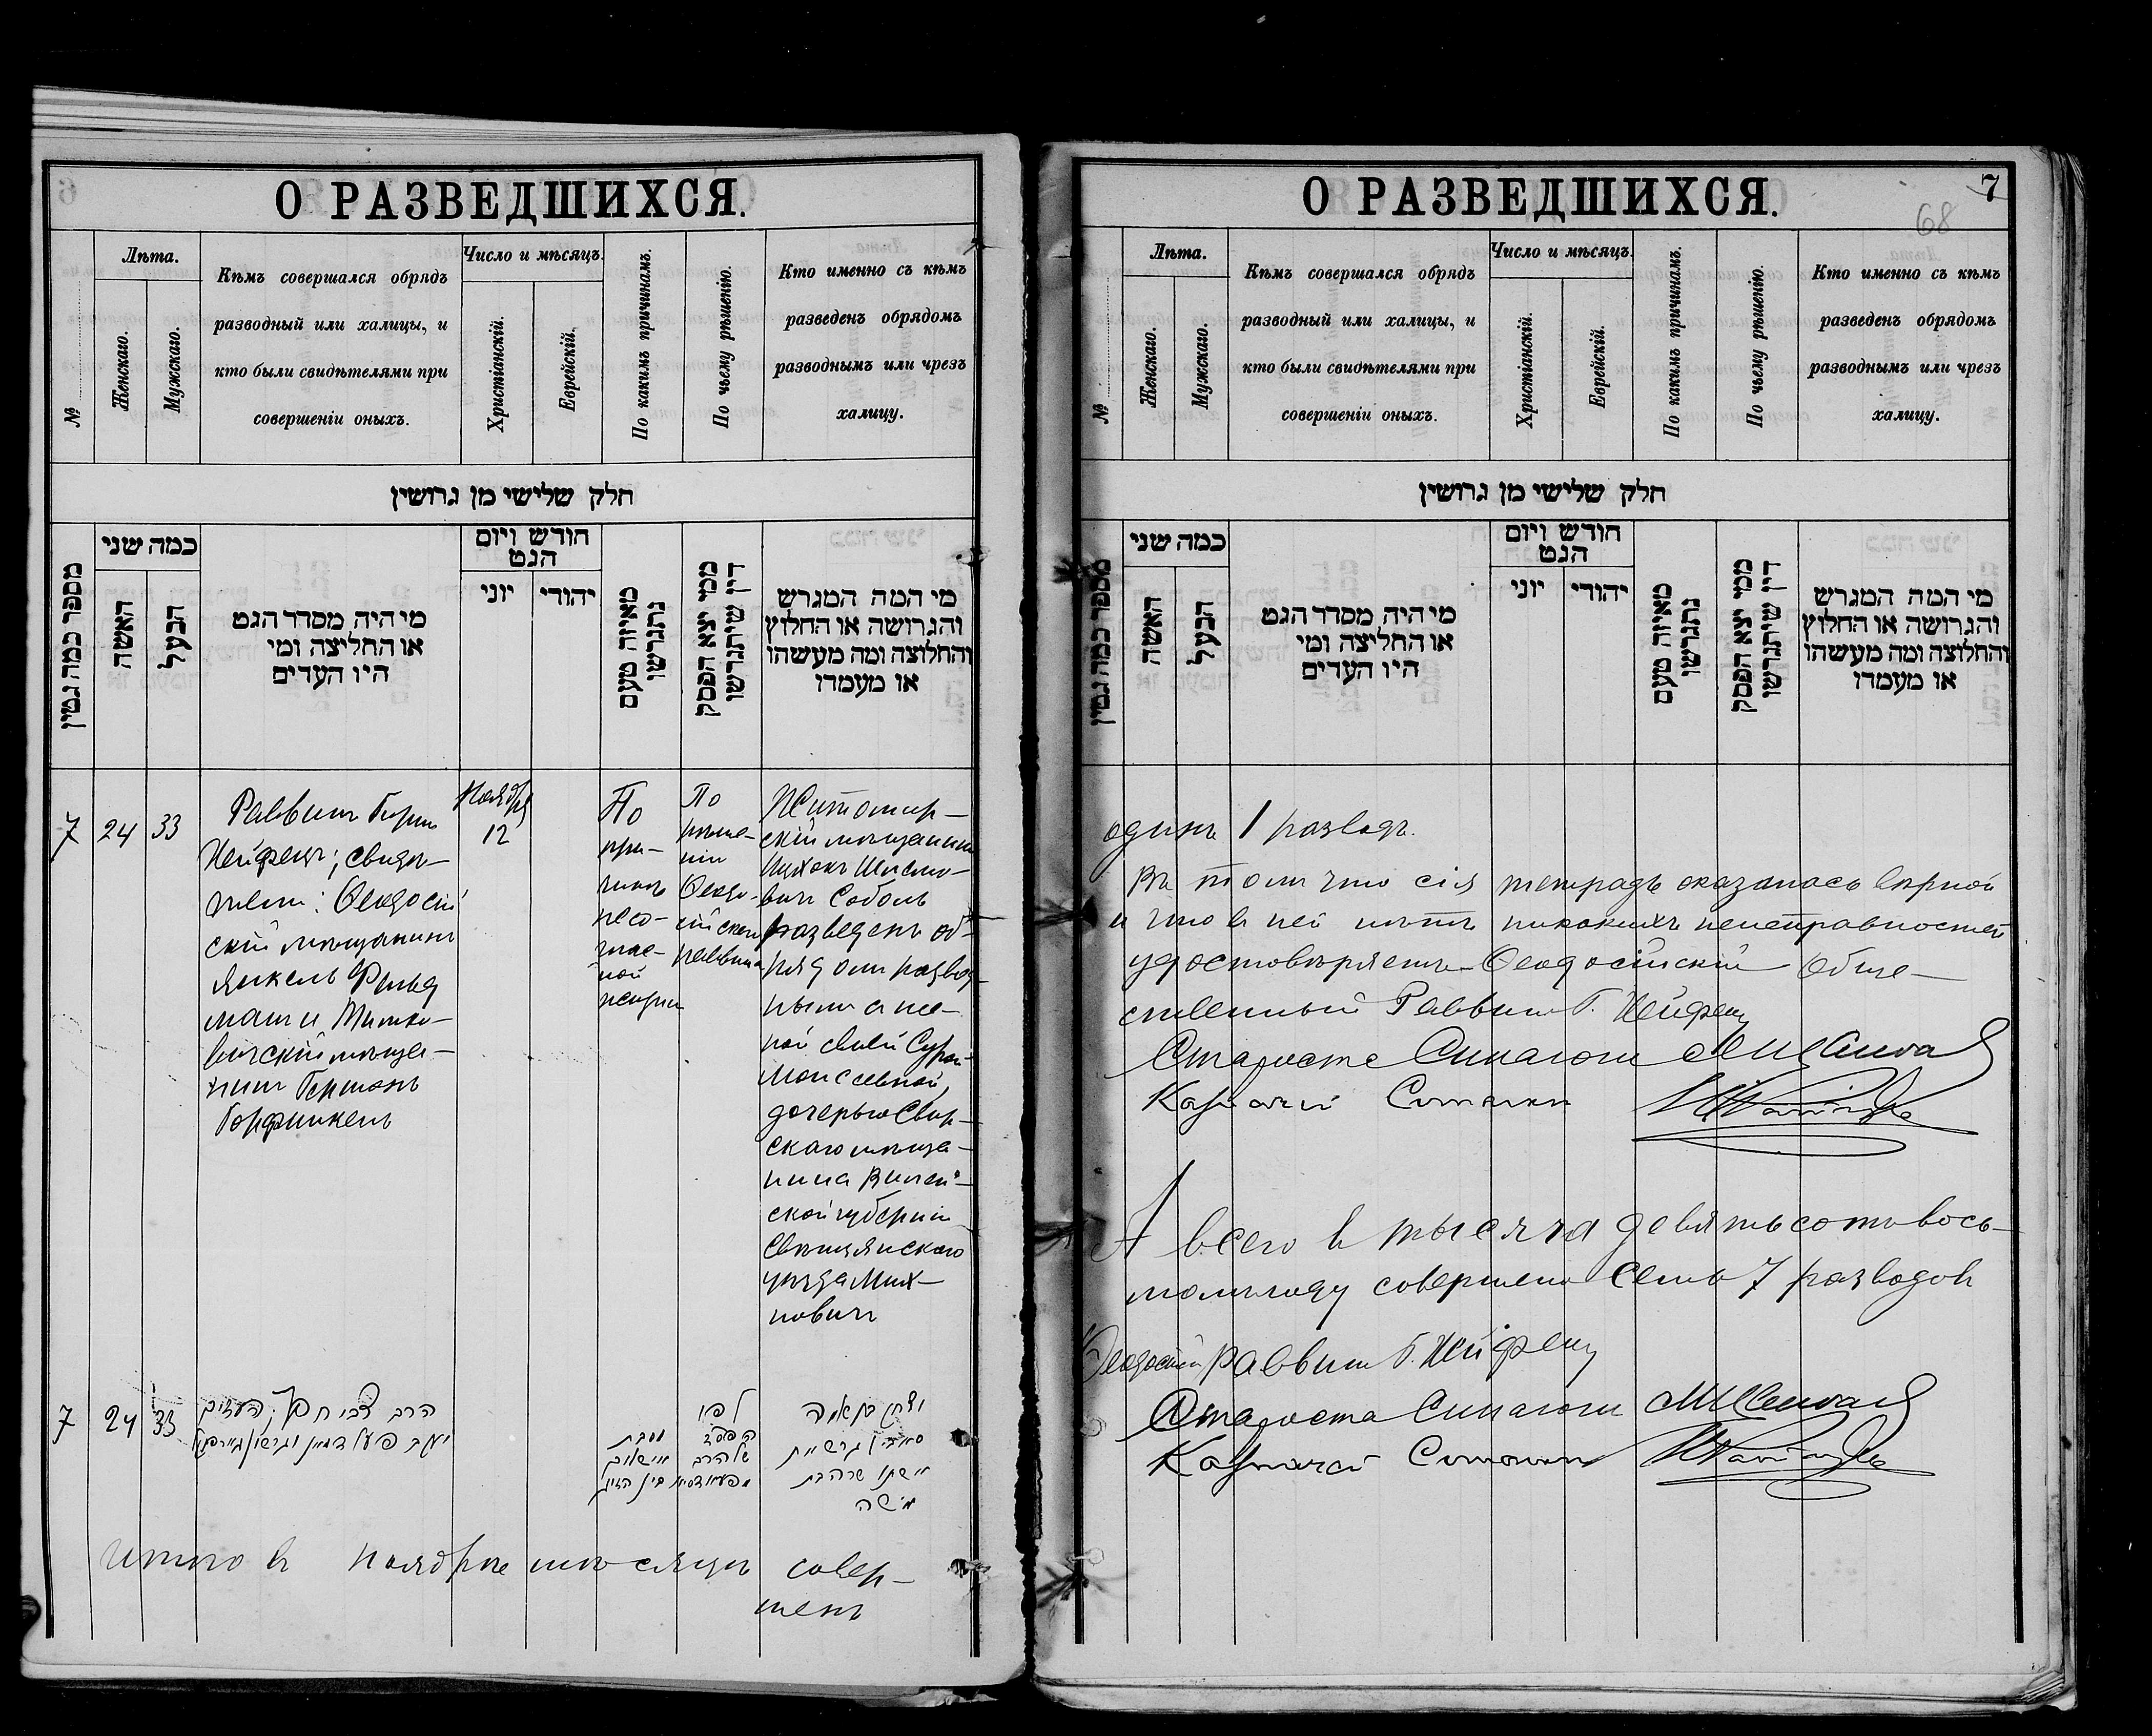 О РАЗВЕДШИХСЯ.
№
Лѣта.
Женскаго.
Мужскаго.
Кѣмъ совершался обрядъ
разводный или халицы, и
кто были свидѣтелями при
совершеніи оныхъ.
Число и мѣсяцъ.
Христіанскій.
Еврейскій.
По какимъ причинамъ.
По чьему рѣшенію.
Кто именно съ кѣмъ
разведенъ обрядомъ
разводнымъ или чрезъ
халицу.
חלק שלישי מן גרושין
מספר כמה גטין
כמה שני
האשה
הבעל
מי היה מסדר הגט
או החליצה ומי
היו העדים
חודש ויום
הגט
יוני
יהודי
מאיזה טעם
נתגרשו
ממי יצא הפסק
דין שיתגרשו
מי המה המגרש
והגרושה או החלוץ
והחלוצה ומה מעשהו
או מעמדו
7
24
33
Раввинъ
Хейфецъ; свидѣ-
тели: Ѳеодосій
скій мѣщанинъ
Янкель Фельд
манъ и
вичскій мѣща-
нинъ Гершонъ
Горфинкель
Ноября
12
По
при-
чинѣ
несо-
глас-
ной
жизни
По
рѣше-
нію
Ѳеодо-
сійскаго
раввина
Житомир-
скій мѣщанинъ
Соболь
разведенъ об-
рядомъ развод
нымъ съ же-
ной своей Сурой
Моисеевной,
дочерью Свир-
скаго мѣща-
нина Вилен-
ской губерніи
Свенцянскаго
уѣзда Мих-
новичъ
7
24
33
הרב צבי חפץ, העדים
יעקב פעלדמאן וגרשון גורפינקל
סבת
לפי
הפסד
של הרב
משה
Итого въ Ноябрѣ мѣсяцѣ совер-
шенъ
О РАЗВЕДШИХСЯ.
7
68
№
Лѣта.
Женскаго.
Мужскаго.
Кѣмъ совершался обрядъ
разводный или халицы, и
кто были свидѣтелями при
совершеніи оныхъ.
Число и мѣсяцъ.
Христіанскій.
Еврейскій.
По какимъ причинамъ.
По чьему рѣшенію.
Кто именно съ кѣмъ
разведенъ обрядомъ
разводнымъ или чрезъ
халицу.
חלק שלישי מן גרושין
מספר כמה גטין
כמה שני
האשה
הבעל
מי היה מסדר הגט
או החליצה ומי
היו העדים
חודש ויום
הגט
יוני
יהודי
מאיזה טעם
נתגרשו
ממי יצא הפסק
דין שיתגרשו
מי המה המגרש
והגרושה או החלוץ
והחלוצה ומה מעשהו
או מעמדו
одинъ 1 разводъ.
Въ томъ что сія тетрадь оказалась вѣрной
и что въ ней нѣтъ никакихъ неисправностей
удостовѣряетъ Ѳеодосійскій Обще-
ственный Раввинъ Г. Хейфецъ
Староста Синагоги
Казначей Синагоги
А всего въ тысяча девятьсотъ вось-
момъ году совершено семь 7 разводовъ
Ѳеодосій Раввинъ Г. Хейфецъ
Староста Синагоги
Казначей Синагоги